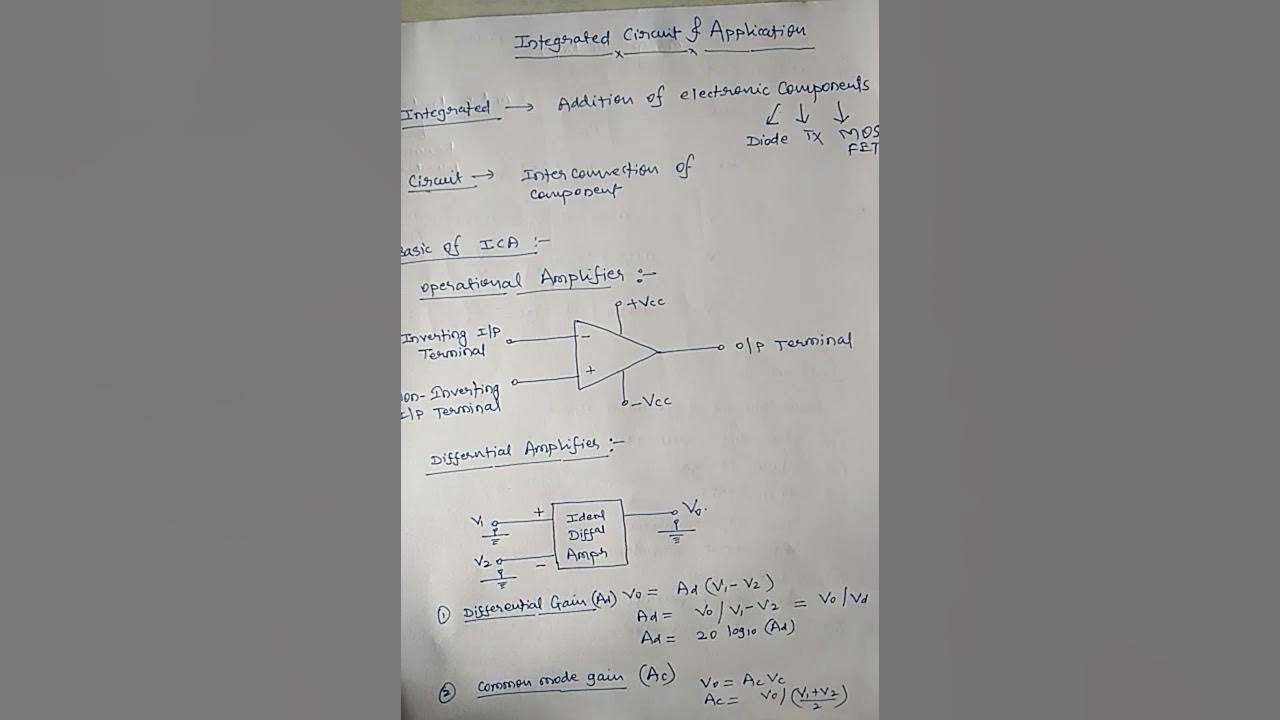 Integrated Circuit & Application
Integrated → Addition of electronic Components
Diode TX MOS
FET
Circuit → Interconnection of
component
Basic of ICA :-
Operational Amplifier :-
+Vcc
Inverting I/P
Terminal
-
O/P Terminal
+
Non-Inverting
I/P Terminal
-Vcc
Differntial Amplifier :-
V1 + Ideal Vo.
Diffal
V2 - Ampr
① Differential Gain (Ad) Vo = Ad (V1 - V2)
Ad = Vo / V1 - V2 = Vo / Vd
Ad = 20 log10 (Ad)
② Common mode gain (Ac) Vo = Ac Vc
Ac = Vo / (V1 + V2 / 2)